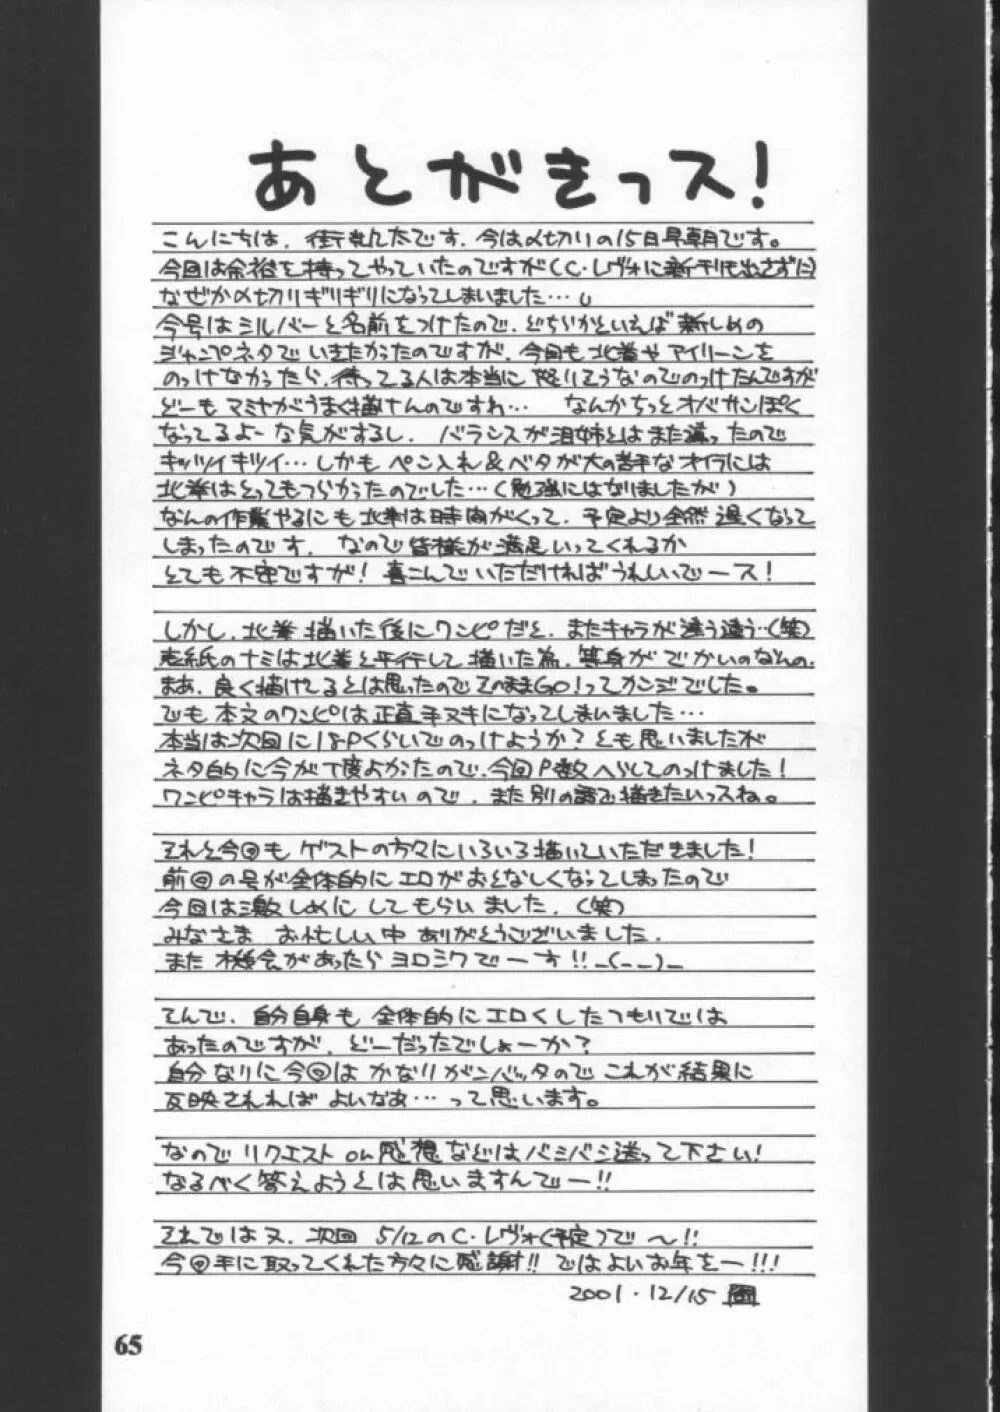 あとがきっス!
こんにちは、街蚪太です。今は〆切りの15日早朝です。
今回は余裕を持ってやっていたのですが(C・レヴォに新刊も出さずに)
なぜか〆切りギリギリになってしまいました…
今号はシルバーと名前をつけたので、どちらかといえば新しめの
ジャンプネタでいきたかったのですが、今回も北拳やアイリーンを
のっけなかったら、待ってる人は本当に怒りそうなのでのっけたんですが
どーもマミヤがうまく描けんのですわ… なんかちっとオバサンぽく
なってるよーな気がするし、バランスが泪姉とはまた違ったので
キッツイキツイ…しかもペン入れ&ベタが大の苦手なオイラには
北拳はとってもつらかったのでした…(勉強にはなりましたが)
なんの作業やるにも北拳は時間がくって、予定より全然遅くなって
しまったのです。なので皆様が満足いってくれるか
とても不安ですが!喜こんでいただければうれしいでース!
しかし、北拳描いた後にワンピだと、またキャラが違う違う…(笑)
表紙のナミは北拳と平行して描いた為、等身がでかいのなんの。
まあ、良く描けてるとは思ったのでそのままGO!ってカンジでした。
でも本文のワンピは正直手ヌキになってしまいました…
本当は次回に18Pくらいでのっけようか?とも思いましたが
ネタ的に今が丁度よかったので、今回P数へらしてのっけました!
ワンピキャラは描きやすいので、また別の話で描きたいっスね。
それと今回もゲストの方々にいろいろ描いていただきました!
前回の号が全体的にエロがおとなしくなってしまったので
今回は激しめにしてもらいました。(笑)
みなさまお忙しい中ありがとうございました。
また機会があったらヨロシクでーす!!_(_ _)_
そんで、自分自身も全体的にエロくしたつもりでは
あったのですが、どーだったでしょーか?
自分なりに今回はかなりガンバッタのでこれが結果に
反映されればよいなあ…って思います。
なのでリクエストor感想などはバシバシ送って下さい!
なるべく答えようとは思いますんでー!!
それでは又、次回5/12のC・レヴォ(予定)で〜!!
今回手に取ってくれた方々に感謝!!ではよいお年をー!!!
2001.12/15
65